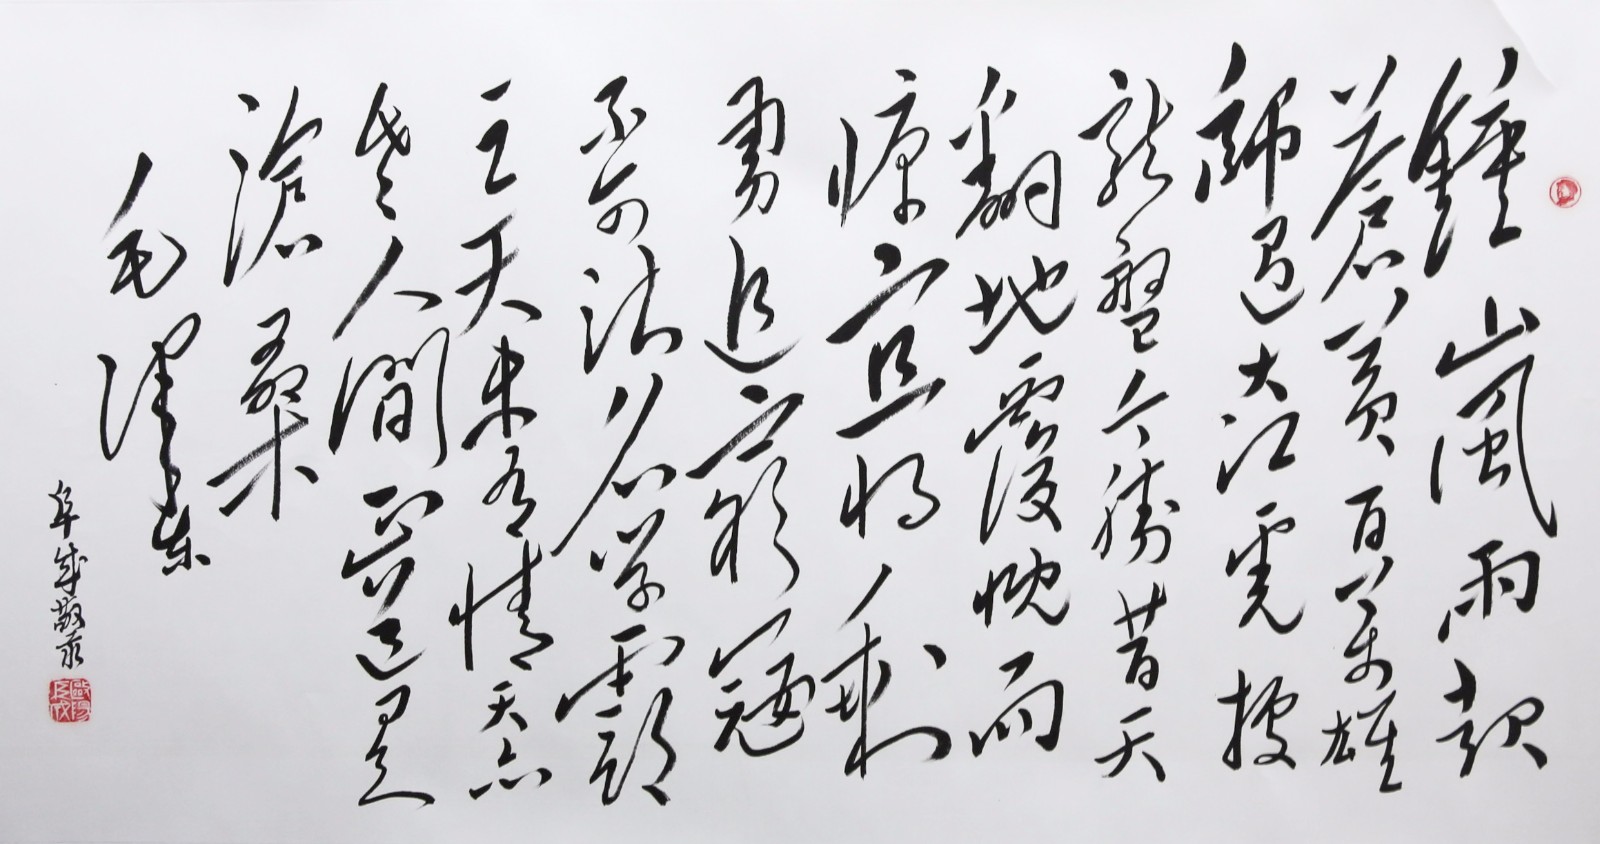 鍾山風雨起
蒼黃百萬雄
師過大江虎據
龍盤今勝昔天
翻地覆慨而
慷宜將剩
勇追窮寇
不可沽名學霸
王天若有情天亦
老人間正道是
滄桑
毛澤東
阜成敬录